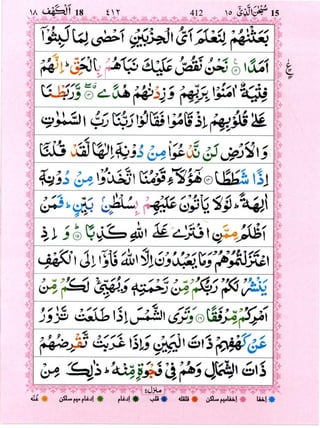 سُبْحٰنَ الَّذِىْٓ ١٥ 15 412 ٤١٢ اَلْكَهْف ١٨ 18
بَعَثْنٰهُمْ لِنَعْلَمَ اَىُّ الْحِزْبَيْنِ اَحْصٰى لِمَا لَبِثُوْٓا
اَمَدًا ۟ نَحْنُ نَقُصُّ عَلَيْكَ نَبَاَهُمْ بِالْحَقِّ ؕ اِنَّهُمْ
فِتْيَةٌ اٰمَنُوْا بِرَبِّهِمْ وَزِدْنٰهُمْ هُدًى ۟ وَّرَبَطْنَا
عَلٰى قُلُوْبِهِمْ اِذْ قَامُوْا فَقَالُوْا رَبُّنَا رَبُّ السَّمٰوٰتِ
وَالْاَرْضِ لَنْ نَّدْعُوَا۟ مِنْ دُوْنِهٖٓ اِلٰهًا لَّقَدْ قُلْنَآ
اِذًا شَطَطًا ۟ هٰٓؤُلَآءِ قَوْمُنَا اتَّخَذُوْا مِنْ دُوْنِهٖٓ
اٰلِهَةً ؕ لَوْلَا يَاْتُوْنَ عَلَيْهِمْ بِسُلْطٰنٍۭ بَيِّنٍ ؕ فَمَنْ
اَظْلَمُ مِمَّنِ افْتَرٰى عَلَى اللّٰهِ كَذِبًا ۟ وَ اِذِ
اعْتَزَلْتُمُوْهُمْ وَمَا يَعْبُدُوْنَ اِلَّا اللّٰهَ فَاْوٗٓا اِلَى الْكَهْفِ
يَنْشُرْ لَكُمْ رَبُّكُمْ مِّنْ رَّحْمَتِهٖ وَيُهَيِّئْ لَكُمْ مِّنْ
اَمْرِكُمْ مِّرْفَقًا ۟ وَتَرَى الشَّمْسَ اِذَا طَلَعَتْ تَّزٰوَرُ
عَنْ كَهْفِهِمْ ذَاتَ الْيَمِيْنِ وَاِذَا غَرَبَتْ تَّقْرِضُهُمْ
ذَاتَ الشِّمَالِ وَهُمْ فِىْ فَجْوَةٍ مِّنْهُ ؕ ذٰلِكَ مِنْ
منزل ٤
اخفا اخفا میم ساکن قلقله قلب ادغام ادغام میم ساکن غنه